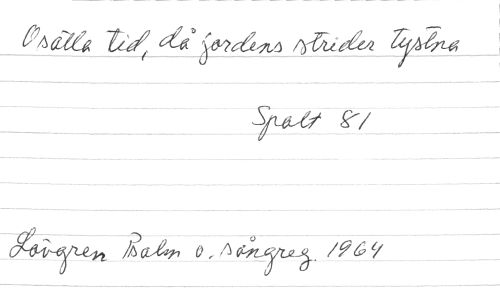 O sälla tid, då jordens strider tystna
Spalt 81
Lövgren Psalm o. sångreg. 1964